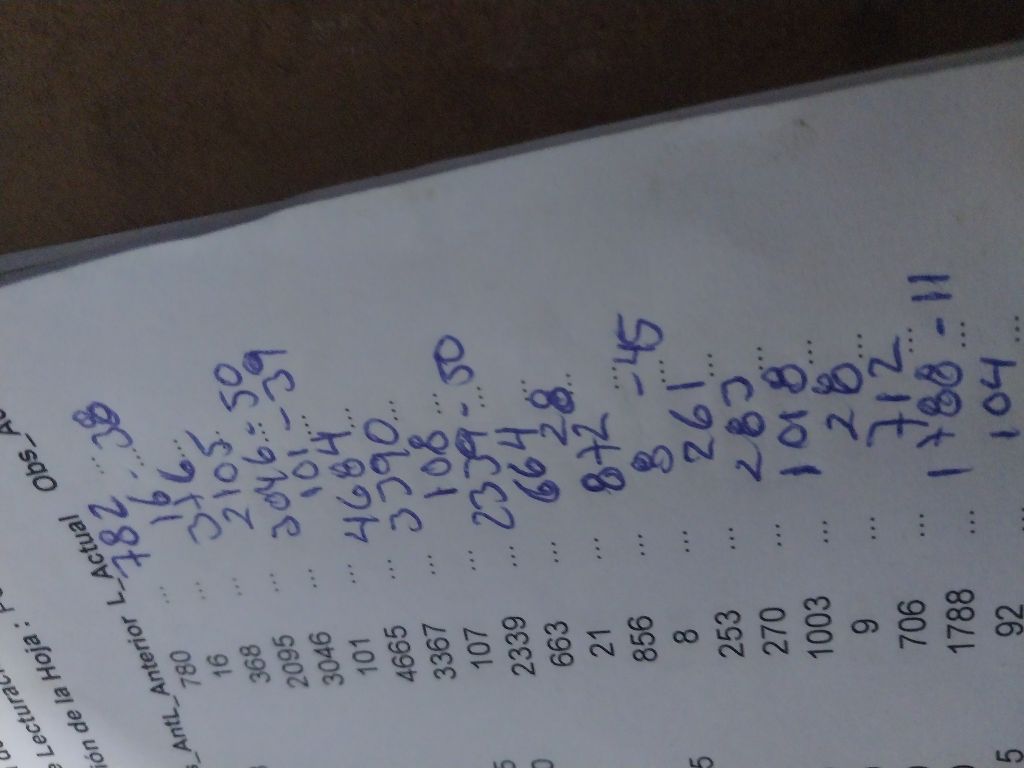 ión de la Hoja :
L_Anterior L_Actual
780 ... 782 ...
16 ... 16 - 38
368 ... 376 ...
2095 ... 2105 ...
3046 ... 3046 - 50
101 ... 101 - 39
4665 ... 4684 ...
3367 ... 3390 ...
107 ... 108 ...
2339 ... 2339 - 50
663 ... 664 ...
21 ... 28 ...
856 ... 872 ...
8 ... 8 - 45
253 ... 261 ...
270 ... 283 ...
1003 ... 1018 ...
9 ... 28 ...
706 ... 712 ...
1788 ... 1788 - 11
92 ... 104 ...